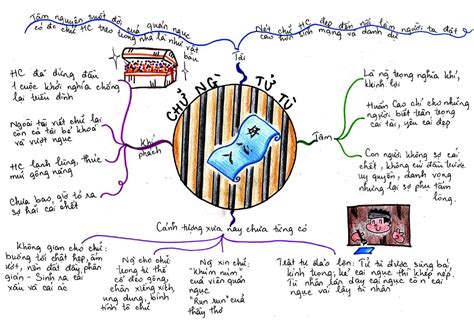 Tâm nguyện suốt đời của quản ngục
có đc chữ HC treo trong nhà là như vật
báu
Nét chữ HC đẹp đến nỗi làm người ta đặt
cao hơn tính mạng và danh dự
Tài
CHỮ NG TỬ TÙ
Khí
phách
HC đã đứng đầu
1 cuộc khởi nghĩa chống
lại triều đình
Ngoài tài viết chữ lại
còn có tài bẻ khóa
và vượt ngục
HC lạnh lùng, thúc
mũ gông nặng
Chưa bao giờ tỏ ra
sợ hãi cái chết
Tâm
Là ng trọng nghĩa khí,
khinh lợi
Huấn Cao chỉ cho những
người biết trân trọng
cái tài, yêu cái đẹp
Con người không sợ cái
chết, không cúi đầu trước
uy quyền, danh vọng
nhưng lại sợ phụ tấm
lòng.
Cảnh tượng xưa nay chưa từng có
Không gian cho chữ:
buồng tối chật hẹp, ẩm
ướt, nền đất đầy phân
gián - Sinh ra cái
xấu và cái ác
Ng cho chữ:
trong tư thế
cổ đeo gông,
chân xiềng xích,
ung dung, bình
tĩnh tô chữ
Ng xin chữ:
"Khúm núm"
của viên quản
ngục
"Run run" của
thầy thơ
Trật tự đảo lộn: Tử tù được sùng bái,
kính trọng, kẻ cai ngục thì khép nép,
Tù nhân răn dạy cai ngục còn cai
ngục vái lạy tù nhân